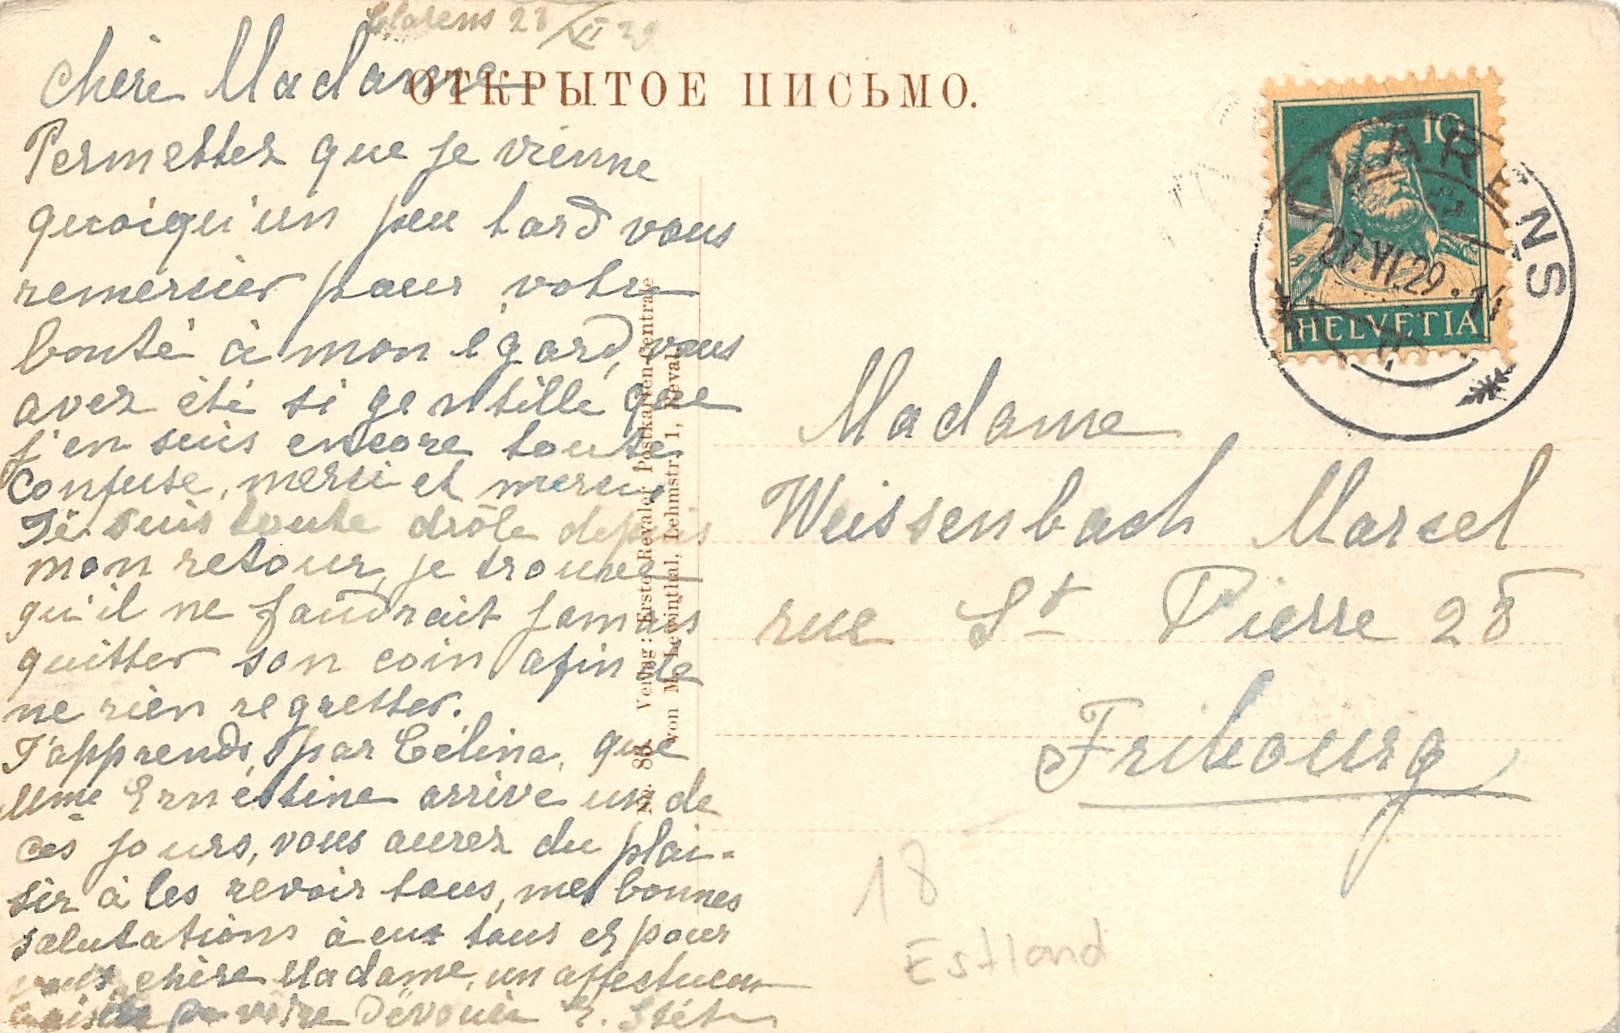 Clarens 28/VI 29
ОТКРЫТОЕ ПИСЬМО.
Chère Madame
Permettez que je vienne
quoiqu'un peu tard vous
remercier pour votre
bonté à mon égard, vous
avez été si gentille que
j'en suis encore toute
confuse, merci et merci,
Je suis toute drôle depuis
mon retour, je trouve
qu'il ne faudrait jamais
quitter son coin afin de
ne rien regretter.
J'apprends, par Célina, que
Mme Ernestine arrive un de
ces jours, vous aurez du plai-
sir à les revoir tous, mes bonnes
salutations à eux tous et pour
vous, chère Madame, un affectueux
baiser de votre dévouée E.
Verlag: Erste Revaler Postkarten-Centrale
von M. Lewinthal, Lehmstr. 1, Reval.
10
HELVETIA
CLARENS
27.VI.29
Madame
Weissenbach Marcel
rue St Pierre 28
Fribourg
18
Estland